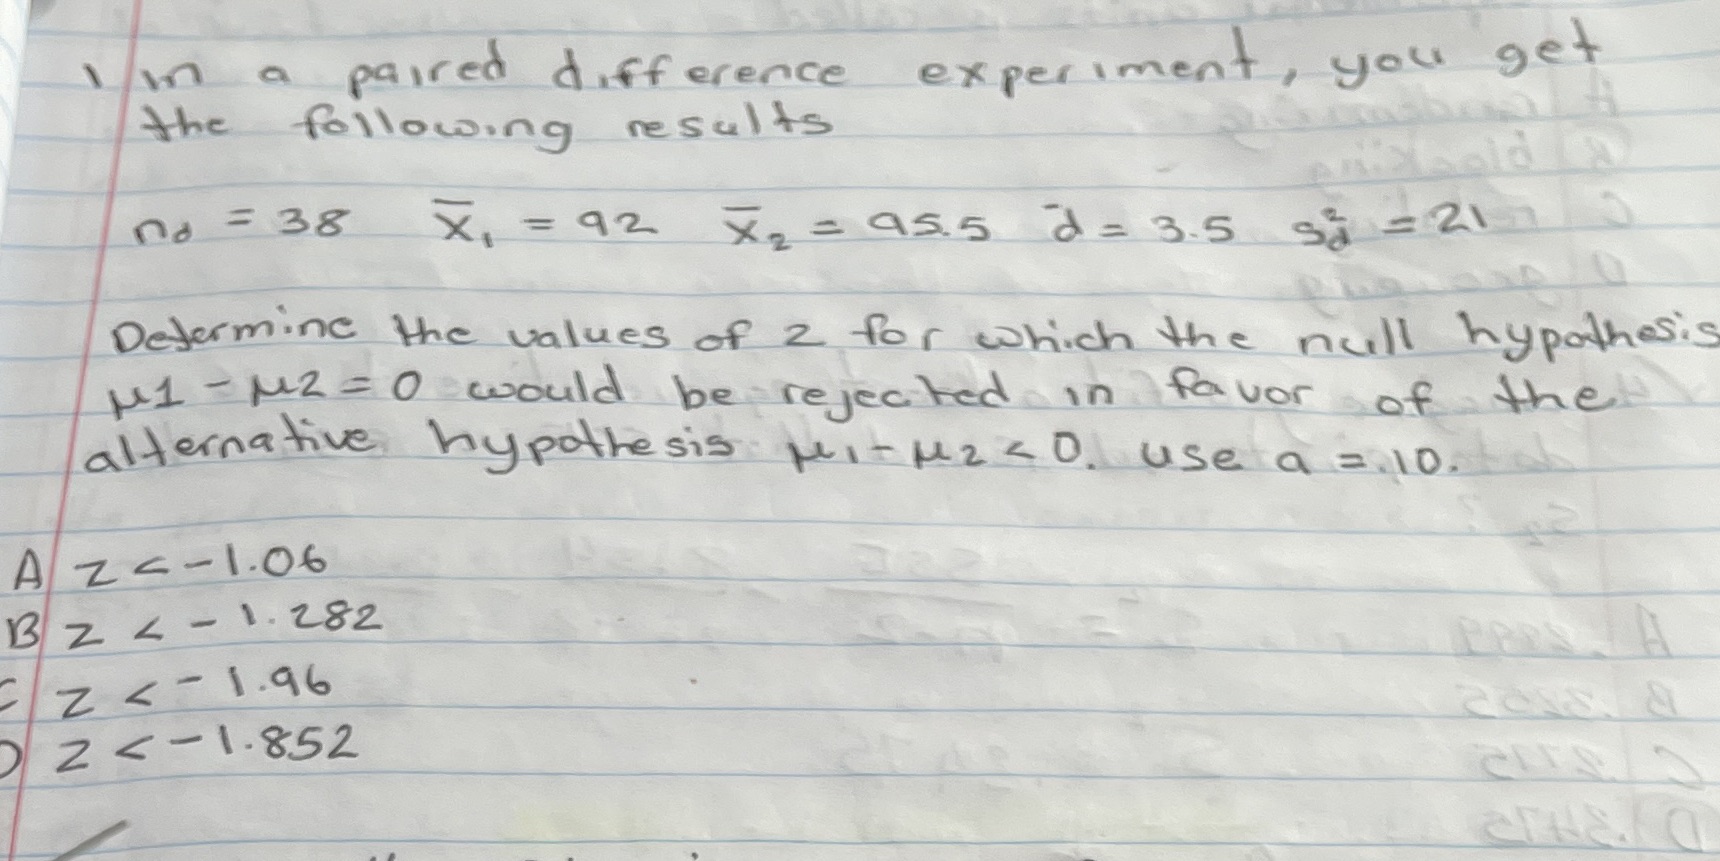 1 in a paired difference experiment, you get
the following results
nd = 38 x̄₁ = 92 x̄₂ = 95.5 d̄ = 3.5 s²d = 21
Determine the values of z for which the null hypothesis
μ1 - μ2 = 0 would be rejected in favor of the
alternative hypothesis μ₁ - μ₂ < 0. use a = .10.
A z < -1.06
B z < -1.282
C z < -1.96
D z < -1.852